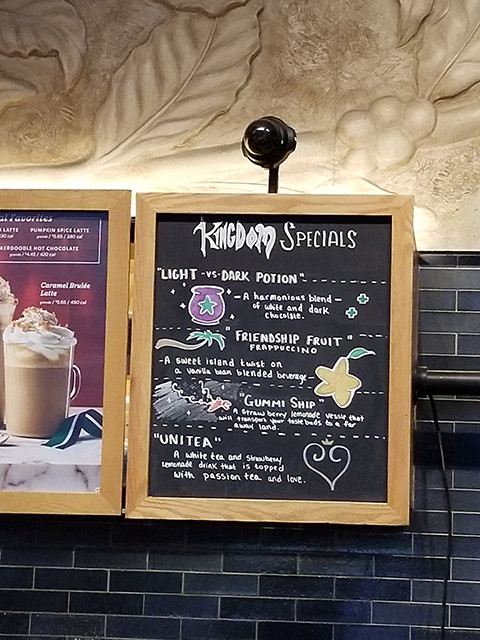 al Favorites
LATTE
30 cal
PUMPKIN SPICE LATTE
grande / $5.65 / 380 cal
KERDOODLE HOT CHOCOLATE
grande / $4.45 / 420 cal
Caramel Brulée
Latte
grande / $5.65 / 450 cal
KINGDOM SPECIALS
"LIGHT -VS- DARK POTION"
- A harmonious blend -
of white and dark
chocolate.
"FRIENDSHIP FRUIT"
FRAPPUCCINO
- A sweet island twist on
a vanilla bean blended beverage
"GUMMI SHIP"
A Strawberry lemonade vessle that
will transport your taste buds to a far
away land.
"UNITEA"
A white tea and strawberry
lemonade drink that is topped
with passion tea and love.